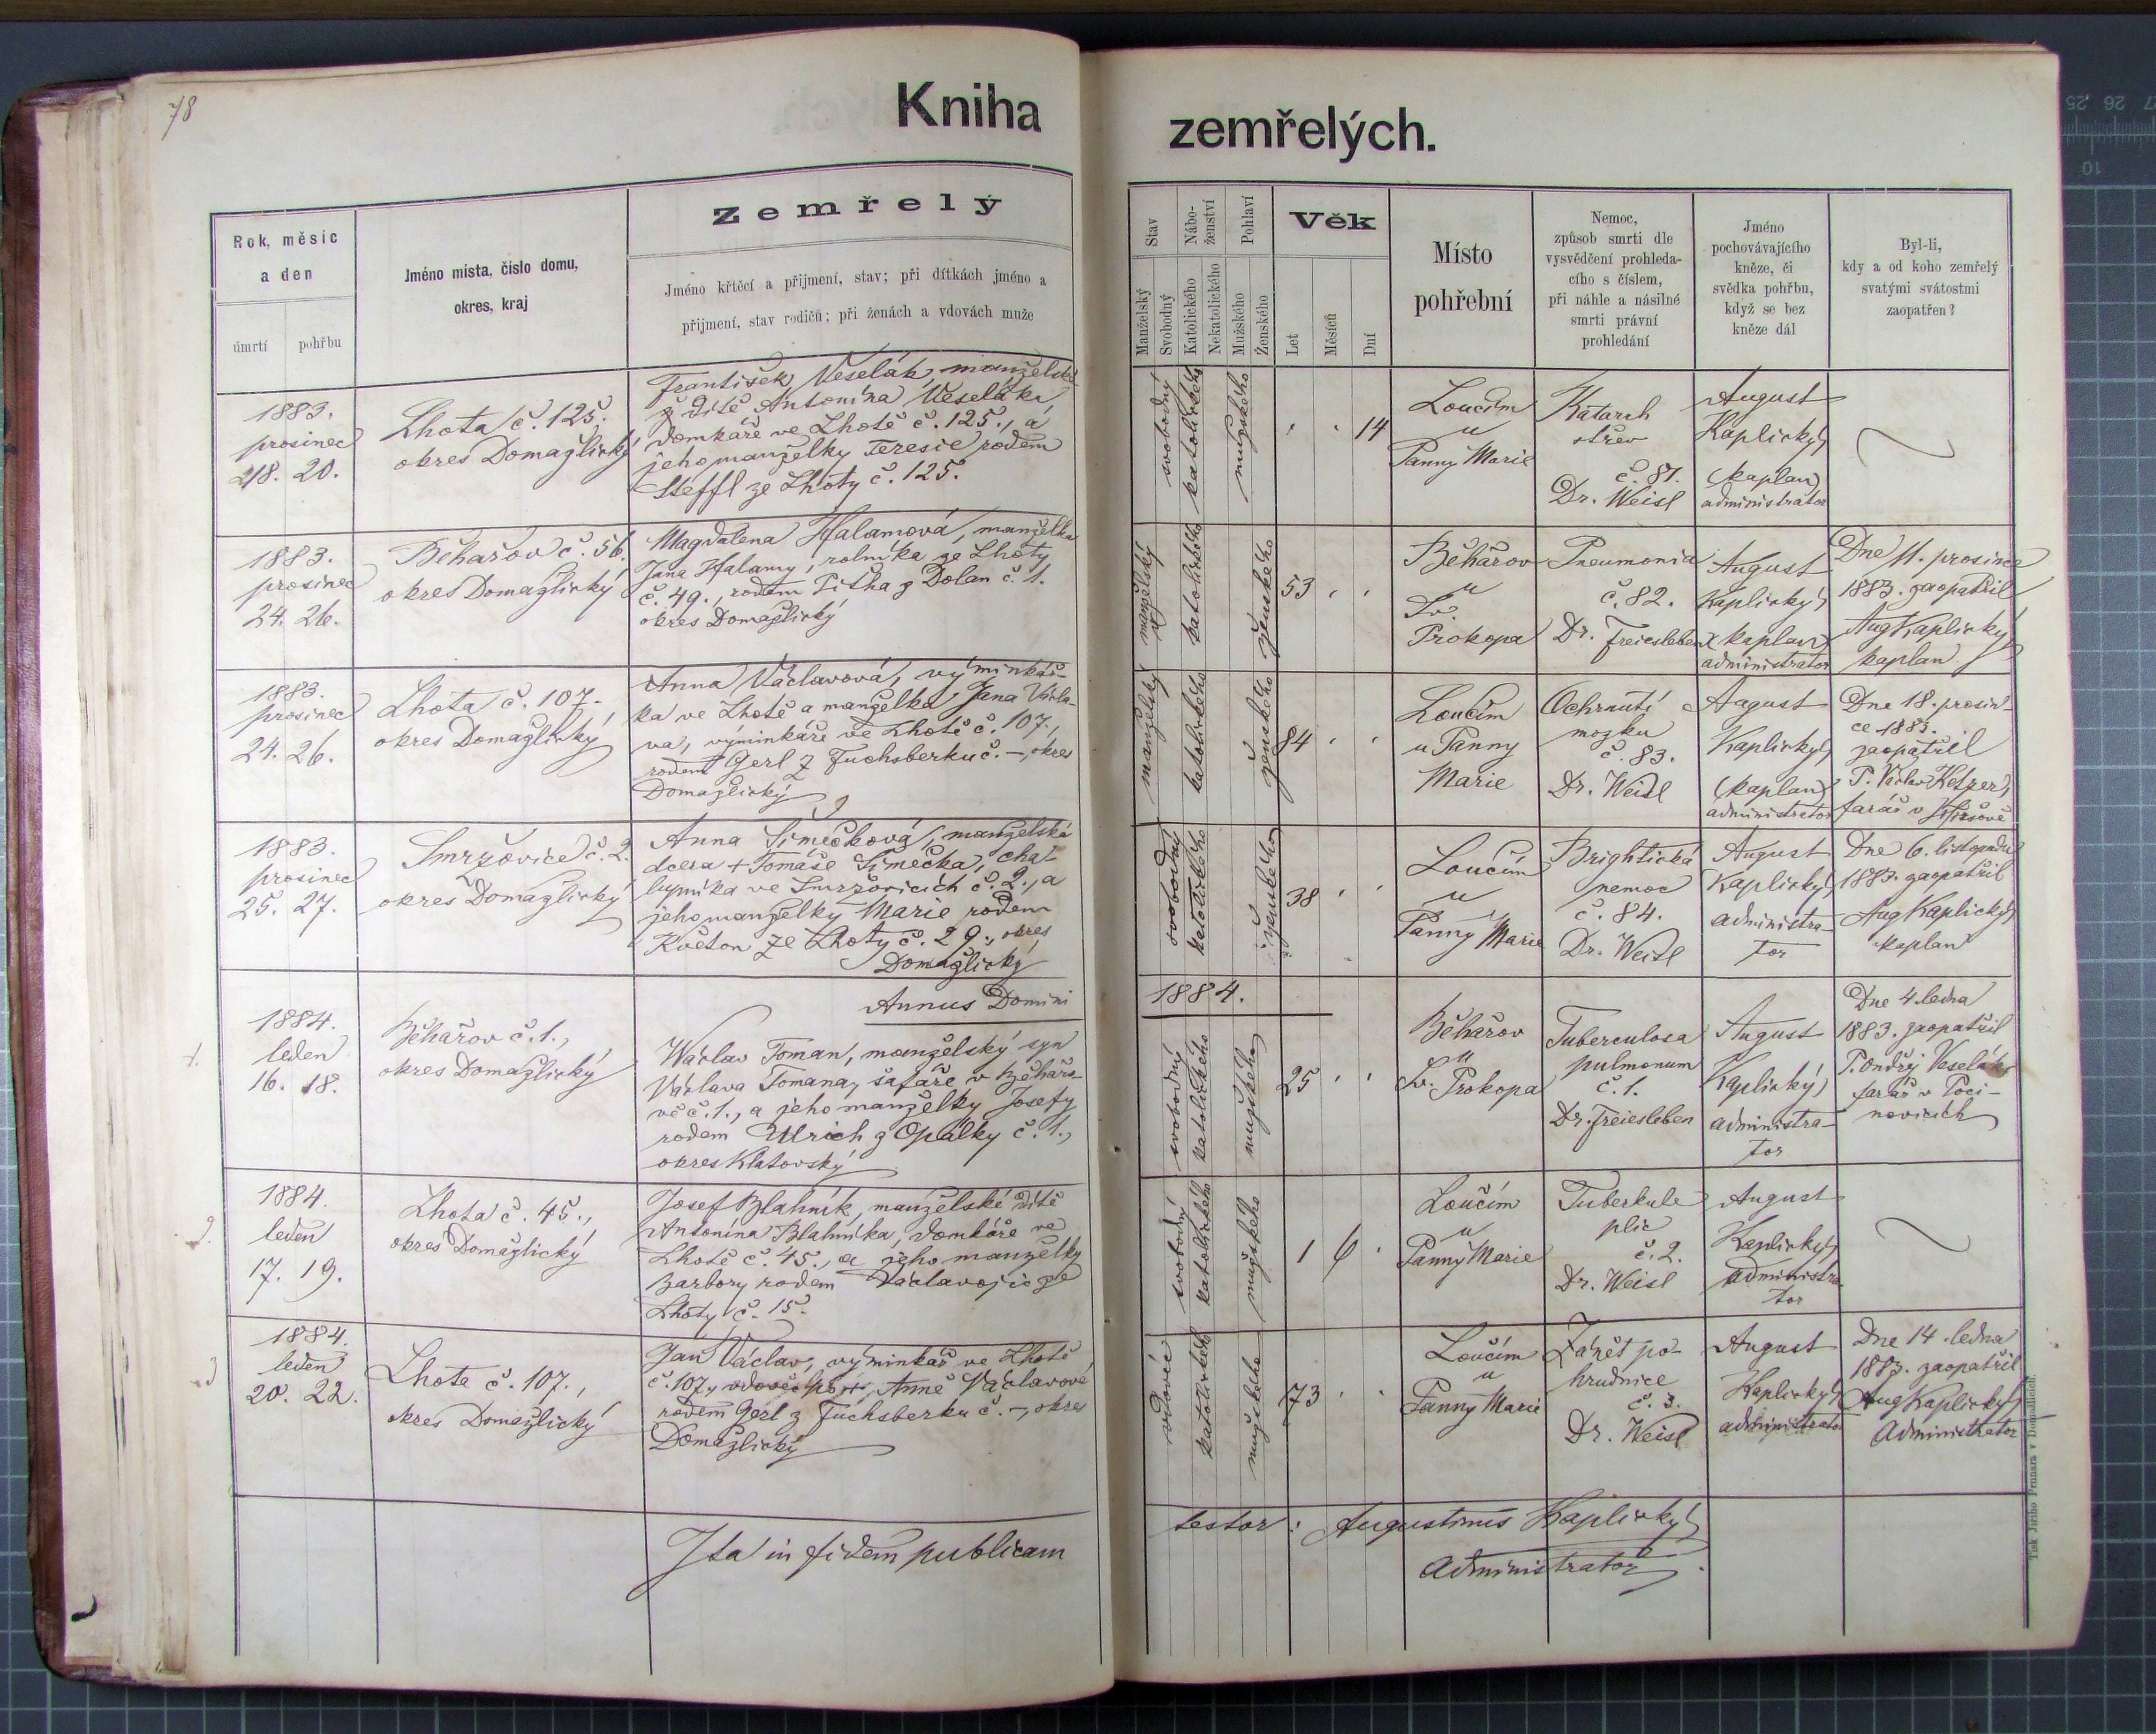 78
Kniha
zemřelých.
Rok, měsíc
a den
úmrtí
pohřbu
Jméno místa, číslo domu,
okres, kraj
Zemřelý
Jméno křtěcí a přijmení, stav; při dítkách jméno a
přijmení, stav rodičů; při ženách a vdovách muže
Stav
Manželský
Svobodný
Nábo-
ženství
Katolického
Nekatolického
Pohlaví
Mužského
Ženského
Věk
Let
Měsíců
Dní
Místo
pohřební
Nemoc,
způsob smrti dle
vysvědčení prohleda-
cího s číslem,
při náhle a násilné
smrti právní
prohledání
Jméno
pochovávajícího
kněze, či
svědka pohřbu,
když se bez
kněze dál
Byl-li,
kdy a od koho zemřelý
svatými svátostmi
zaopatřen?
1883.
prosinec
18. 20.
Lhota č. 125.
okres Domažlický
František Veselák, manželsk-
é dítě Antonína Veseláka,
domkáře ve Lhotě č. 125., a
jeho manželky Teresie rodem
Steffl ze Lhoty č. 125.
svobodný
katolického
mužského
14
Loučim
u
Panny Marie
Katarh
střev
č. 81.
Dr. Weisl
August
Kaplický,
(kaplan)
administrator
1883.
prosinec
24. 26.
Běhařov č. 56.
okres Domažlický
Magdalena Halamová, manželka
Jana Halamy, rolníka ze Lhoty
č. 49., rodem Piťha z Dolan č. 1.
okres Domažlický
manželský
katolického
ženského
53
Běhařov
u
Sv.
Prokopa
Pneumonia
č. 82.
Dr. Freiesleben
August
Kaplický,
kaplan
administrator
Dne 11. prosince
1883. zaopatřil
Aug Kaplický
kaplan
1883.
prosinec
24. 26.
Lhota č. 107.
okres Domažlický
Anna Václavová, výminkář-
ka ve Lhotě a manželka Jana Václa-
va, výminkáře ve Lhotě č. 107.,
rodem Gerl z Fuchsberku č. –, okres
Domažlický
manželský
katolického
ženského
84
Loučim
u Panny
Marie
Ochrnutí
mozku
č. 83.
Dr. Weisl
August
Kaplický,
(kaplan)
administrator
Dne 18. prosin-
ce 1883.
zaopatřil
P. Václav Ketzer,
farář v
1883.
prosinec
25. 27.
Smržovice č. 2.
okres Domažlický
Anna Šimečková, manželská
dcera + Tomáše Šimečka, cha-
lupníka ve Smržovicích č. 2., a
jeho manželky Marie rodem
Květon ze Lhoty č. 29., okres
Domažlický
svobodný
katolického
ženského
38
Loučim
u
Panny Marie
Brightická
nemoc
č. 84.
Dr. Weisl
August
Kaplický,
administra-
tor
Dne 6. listopadu
1883. zaopatřil
Aug Kaplický,
kaplan
Annus Domini
1884.
1.
1884.
leden
16. 18.
Běhařov č. 1.,
okres Domažlický
Václav Toman, manželský syn
Václava Tomana, šafáře v Běhařo-
vě č. 1., a jeho manželky Josefy
rodem Ulrich z Opálky č. 1.,
okres Klatovský
svobodný
katolického
mužského
25
Běhařov
u
Sv. Prokopa
Tuberculosa
pulmonum
č. 1.
Dr. Freiesleben
August
Kaplický,
administra-
tor
Dne 4. ledna
1883. zaopatřil
P. Ondřej Veselák,
farář v Poci-
novicích
2.
1884.
leden
17. 19.
Lhota č. 45.,
okres Domažlický
Josef Blahník, manželské dítě
Antonína Blahníka, domkáře ve
Lhotě č. 45., a jeho manželky
Barbory rodem Václavojic ze
Lhoty č. 15.
svobodný
katolického
mužského
1 6
Loučim
u
Panny Marie
Tuberkule
plic
č. 2.
Dr. Weisl
August
Kaplický,
administra
tor
3
1884.
leden
20. 22.
Lhota č. 107.,
okres Domažlický
Jan Václav, výminkář ve Lhotě
č. 107, vdovec po Anně Václavové
rodem Gerl z Fuchsberku č. –, okres
Domažlický
vdovec
katolického
mužského
73
Loučim
u
Panny Marie
Zánět po-
hrudnice
č. 3.
Dr. Weisl
August
Kaplický,
administrator
Dne 14. ledna
1883. zaopatřil
Aug Kaplický,
Administrator
Ita in fidem publicam
testor: Augustinus Kaplický,
Administrator.
Tisk Jiřího Prunara v Domažlicích.